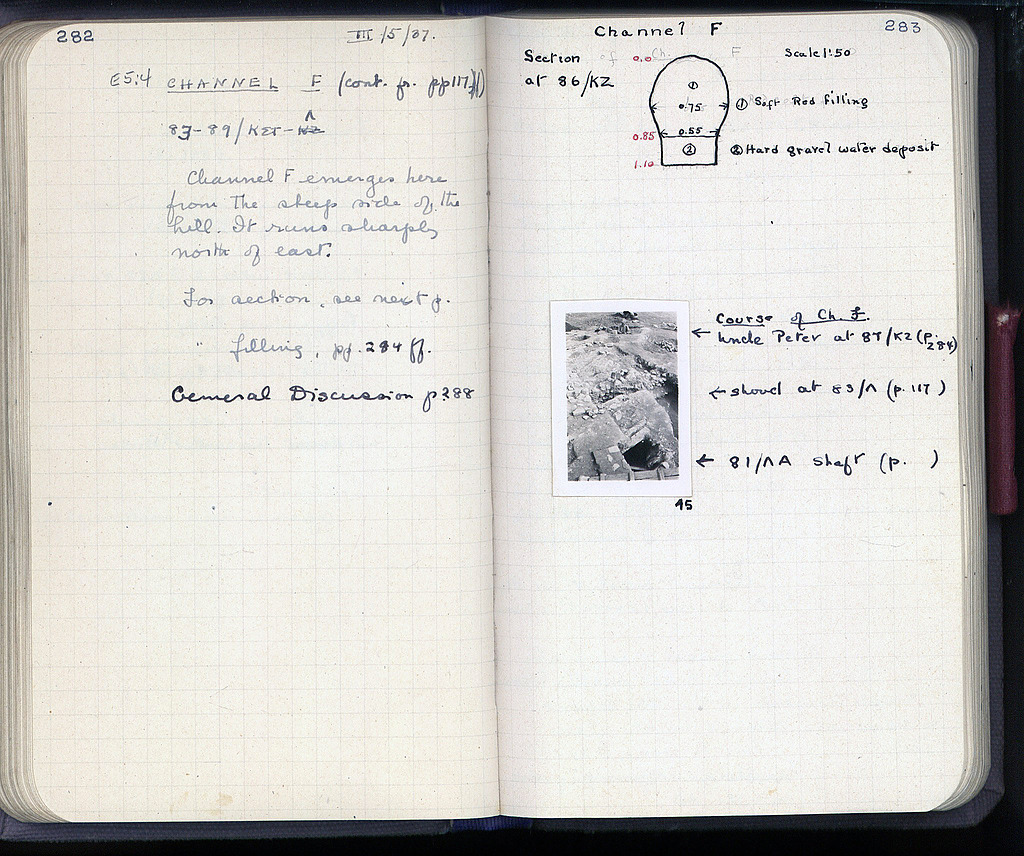 282
III/5/37.
E5:4 CHANNEL F (cont. fr. pp117,
83-89/ΚΣΤ-Λ
Channel F emerges here
from the steep side of the
hill. It runs sharply
north of east.
For section, see next p.
" filling, pp. 284 ff.
General Discussion p 288
Channel F
283
Section of Ch. F
at 86/KZ
Scale 1:50
0.0
①
0.75
① Soft Red filling
0.85
0.55
②
② Hard gravel water deposit
1.10
Course of Ch. F.
← Uncle Peter at 87/KZ (p. 284)
← shovel at 83/Λ (p. 117)
← 81/ΛA shaft (p. )
45